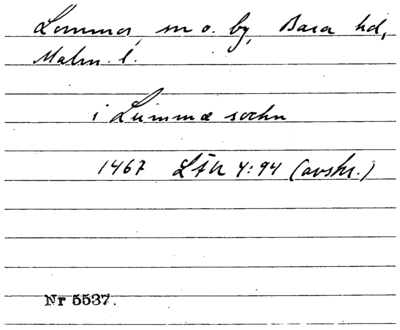 Lomma, sn o. by, Bara hd,
Malm. l.
i Lummæ sochn
1467 LÄU 4:94 (avskr.)
Nr 5537.